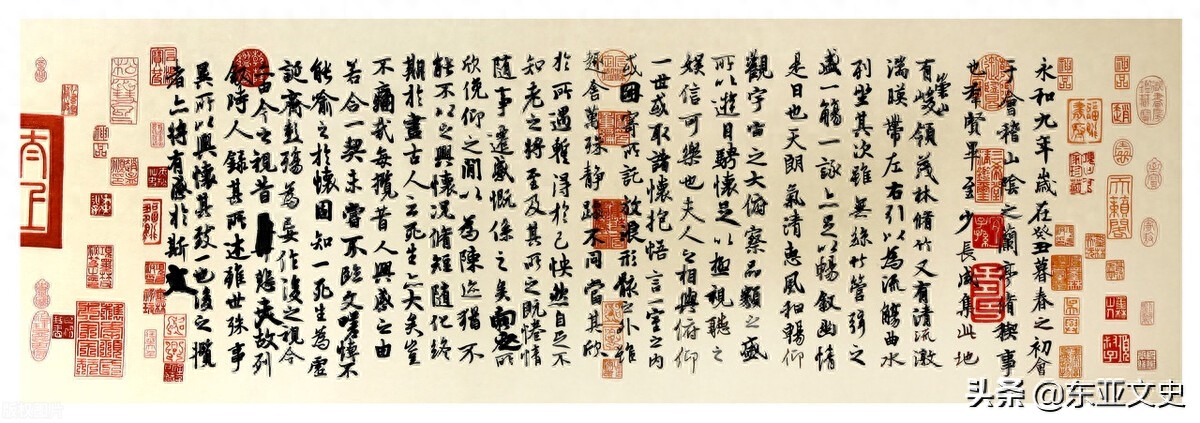 永和九年歲在癸丑暮春之初會
于會稽山陰之蘭亭脩稧事
也羣賢畢至少長咸集此地
有崇山峻領茂林脩竹又有清流激
湍暎帶左右引以為流觴曲水
列坐其次雖無絲竹管弦之
盛一觴一詠亦足以暢敘幽情
是日也天朗氣清惠風和暢仰
觀宇宙之大俯察品類之盛
所以遊目騁懷足以極視聽之
娛信可樂也夫人之相與俯仰
一世或取諸懷抱悟言一室之內
或因寄所託放浪形骸之外雖
趣舍萬殊靜躁不同當其欣
於所遇暫得於己怏然自足不
知老之將至及其所之既惓情
隨事遷感慨係之矣向之所
欣俛仰之間以為陳迹猶不
能不以之興懷況脩短隨化終
期於盡古人云死生亦大矣豈
不痛哉每攬昔人興感之由
若合一契未嘗不臨文嗟悼不
能喻之於懷固知一死生為虛
誕齊彭殤為妄作後之視今
今之視昔悲夫故列
敘時人錄其所述雖世殊事
異所以興懷其致一也後之攬
者亦將有感於斯文
头条 @东亚文史